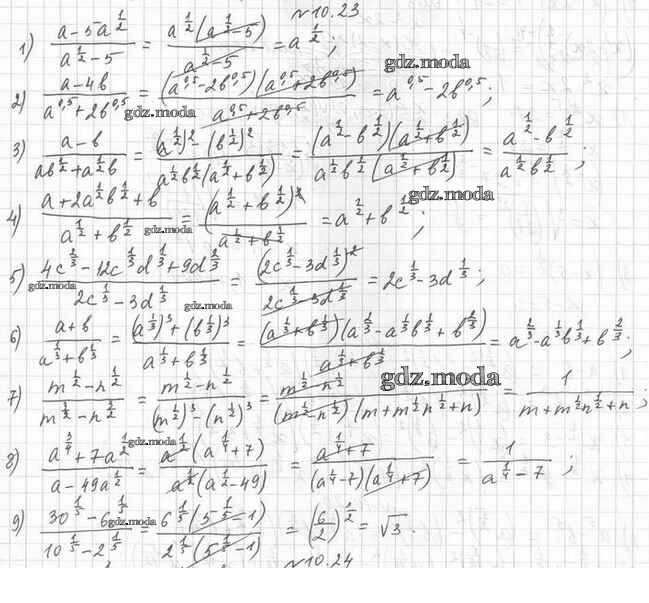 №10.23
1) (a - 5a^(1/2)) / (a^(1/2) - 5) = (a^(1/2)(a^(1/2) - 5)) / (a^(1/2) - 5) = a^(1/2);
gdz.moda
2) (a - 4b) / (a^(0,5) + 2b^(0,5)) = ((a^(0,5) - 2b^(0,5))(a^(0,5) + 2b^(0,5))) / (a^(0,5) + 2b^(0,5)) = a^(0,5) - 2b^(0,5);
gdz.moda
3) (a - b) / (ab^(1/2) + a^(1/2)b) = ((a^(1/2))^2 - (b^(1/2))^2) / (a^(1/2)b^(1/2)(a^(1/2) + b^(1/2))) = ((a^(1/2) - b^(1/2))(a^(1/2) + b^(1/2))) / (a^(1/2)b^(1/2)(a^(1/2) + b^(1/2))) = (a^(1/2) - b^(1/2)) / (a^(1/2)b^(1/2));
gdz.moda
4) (a + 2a^(1/2)b^(1/2) + b) / (a^(1/2) + b^(1/2)) = (a^(1/2) + b^(1/2))^2 / (a^(1/2) + b^(1/2)) = a^(1/2) + b^(1/2);
gdz.moda
5) (4c^(2/3) - 12c^(1/3)d^(1/3) + 9d^(2/3)) / (2c^(1/3) - 3d^(1/3)) = (2c^(1/3) - 3d^(1/3))^2 / (2c^(1/3) - 3d^(1/3)) = 2c^(1/3) - 3d^(1/3);
gdz.moda
gdz.moda
6) (a + b) / (a^(1/3) + b^(1/3)) = ((a^(1/3))^3 + (b^(1/3))^3) / (a^(1/3) + b^(1/3)) = ((a^(1/3) + b^(1/3))(a^(2/3) - a^(1/3)b^(1/3) + b^(2/3))) / (a^(1/3) + b^(1/3)) = a^(2/3) - a^(1/3)b^(1/3) + b^(2/3);
gdz.moda
7) (m^(1/2) - n^(1/2)) / (m^(3/2) - n^(3/2)) = (m^(1/2) - n^(1/2)) / ((m^(1/2))^3 - (n^(1/2))^3) = (m^(1/2) - n^(1/2)) / ((m^(1/2) - n^(1/2))(m + m^(1/2)n^(1/2) + n)) = 1 / (m + m^(1/2)n^(1/2) + n);
gdz.moda
8) (a^(3/4) + 7a^(1/2)) / (a - 49a^(1/2)) = (a^(1/2)(a^(1/4) + 7)) / (a^(1/2)(a^(1/2) - 49)) = (a^(1/4) + 7) / ((a^(1/4) - 7)(a^(1/4) + 7)) = 1 / (a^(1/4) - 7);
gdz.moda
9) (30^(1/5) - 6^(1/5)) / (10^(1/5) - 2^(1/5)) = (6^(1/5)(5^(1/5) - 1)) / (2^(1/5)(5^(1/5) - 1)) = (6/2)^(1/2) = √3.
№10.24